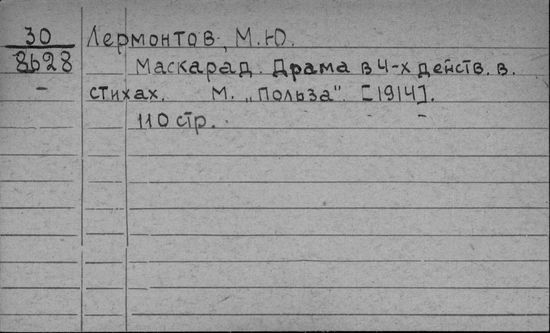 30 Лермонтов, М.Ю.
8628 Маскарад. Драма в 4-х действ. в.
стихах. М. „Польза". [1914].
110 стр.